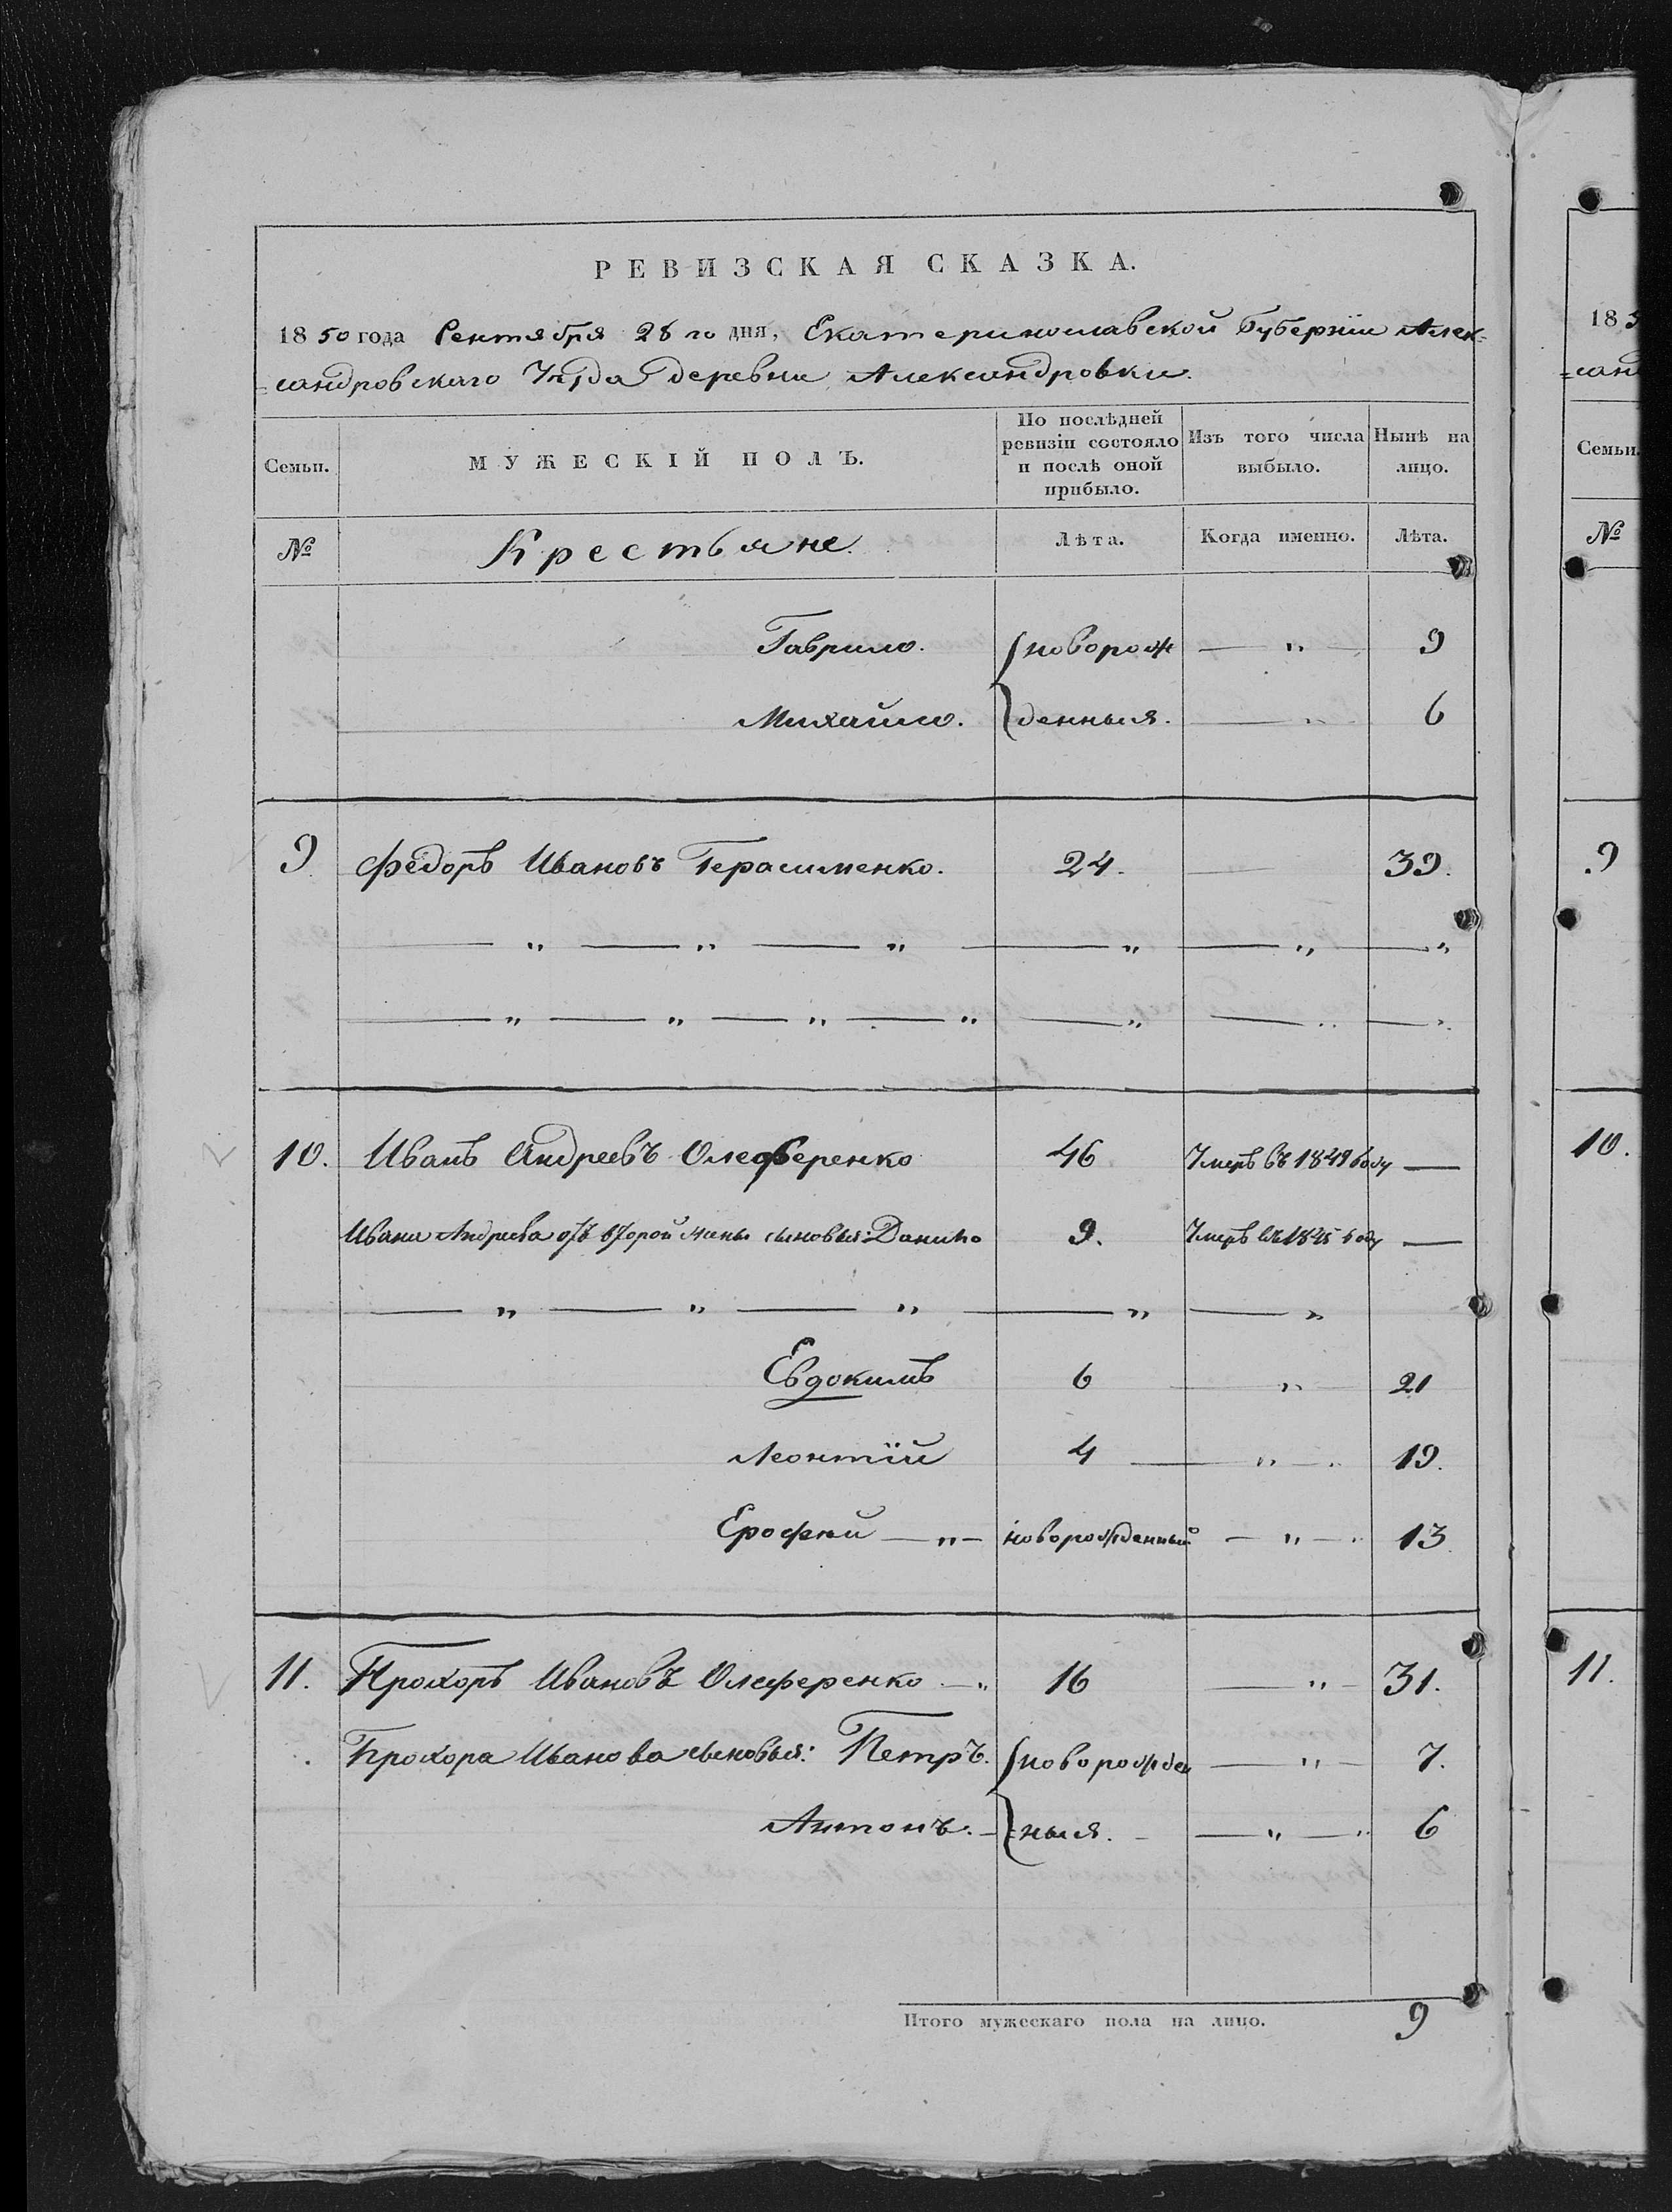 РЕВИЗСКАЯ СКАЗКА.
1850 года Сентября 28 го дня, Екатеринославской Губерніи Алек-
=сандровскаго Уѣзда деревни Александровки.
Семьи. МУЖЕСКІЙ ПОЛЪ. По послѣдней ревизіи состояло и послѣ оной прибыло. Изъ того числа выбыло. Нынѣ на лицо.
№ Крестьяне. Лѣта. Когда именно. Лѣта.
Гаврило. новорож — " — 9
Михайло. денныя. — " — 6
9 Федоръ Ивановъ Герасименко. 24. — 39.
— " — " — " — " — " — "
— " — " — " — " — " — " — "
10. Иванъ Андреевъ Олеференко 46 Умеръ въ 1849 году —
Ивана Андреева отъ второй жены сыновья: Данило 9. Умеръ въ 1845 году —
— " — " — " — " — "
Евдокимъ 6 — " — 21
Леонтій 4 — " — 19.
Ерофѣй — " — новорожденный — " — 13
11. Прохоръ Ивановъ Олеференко — " 16 — " — 31.
Прохора Иванова сыновья: Петръ. новорожден — " — 7.
Антонъ. — =ныя. — — " — " 6
Итого мужескаго пола на лицо. 9
183
=сан
Семьи.
№
9
10.
11.